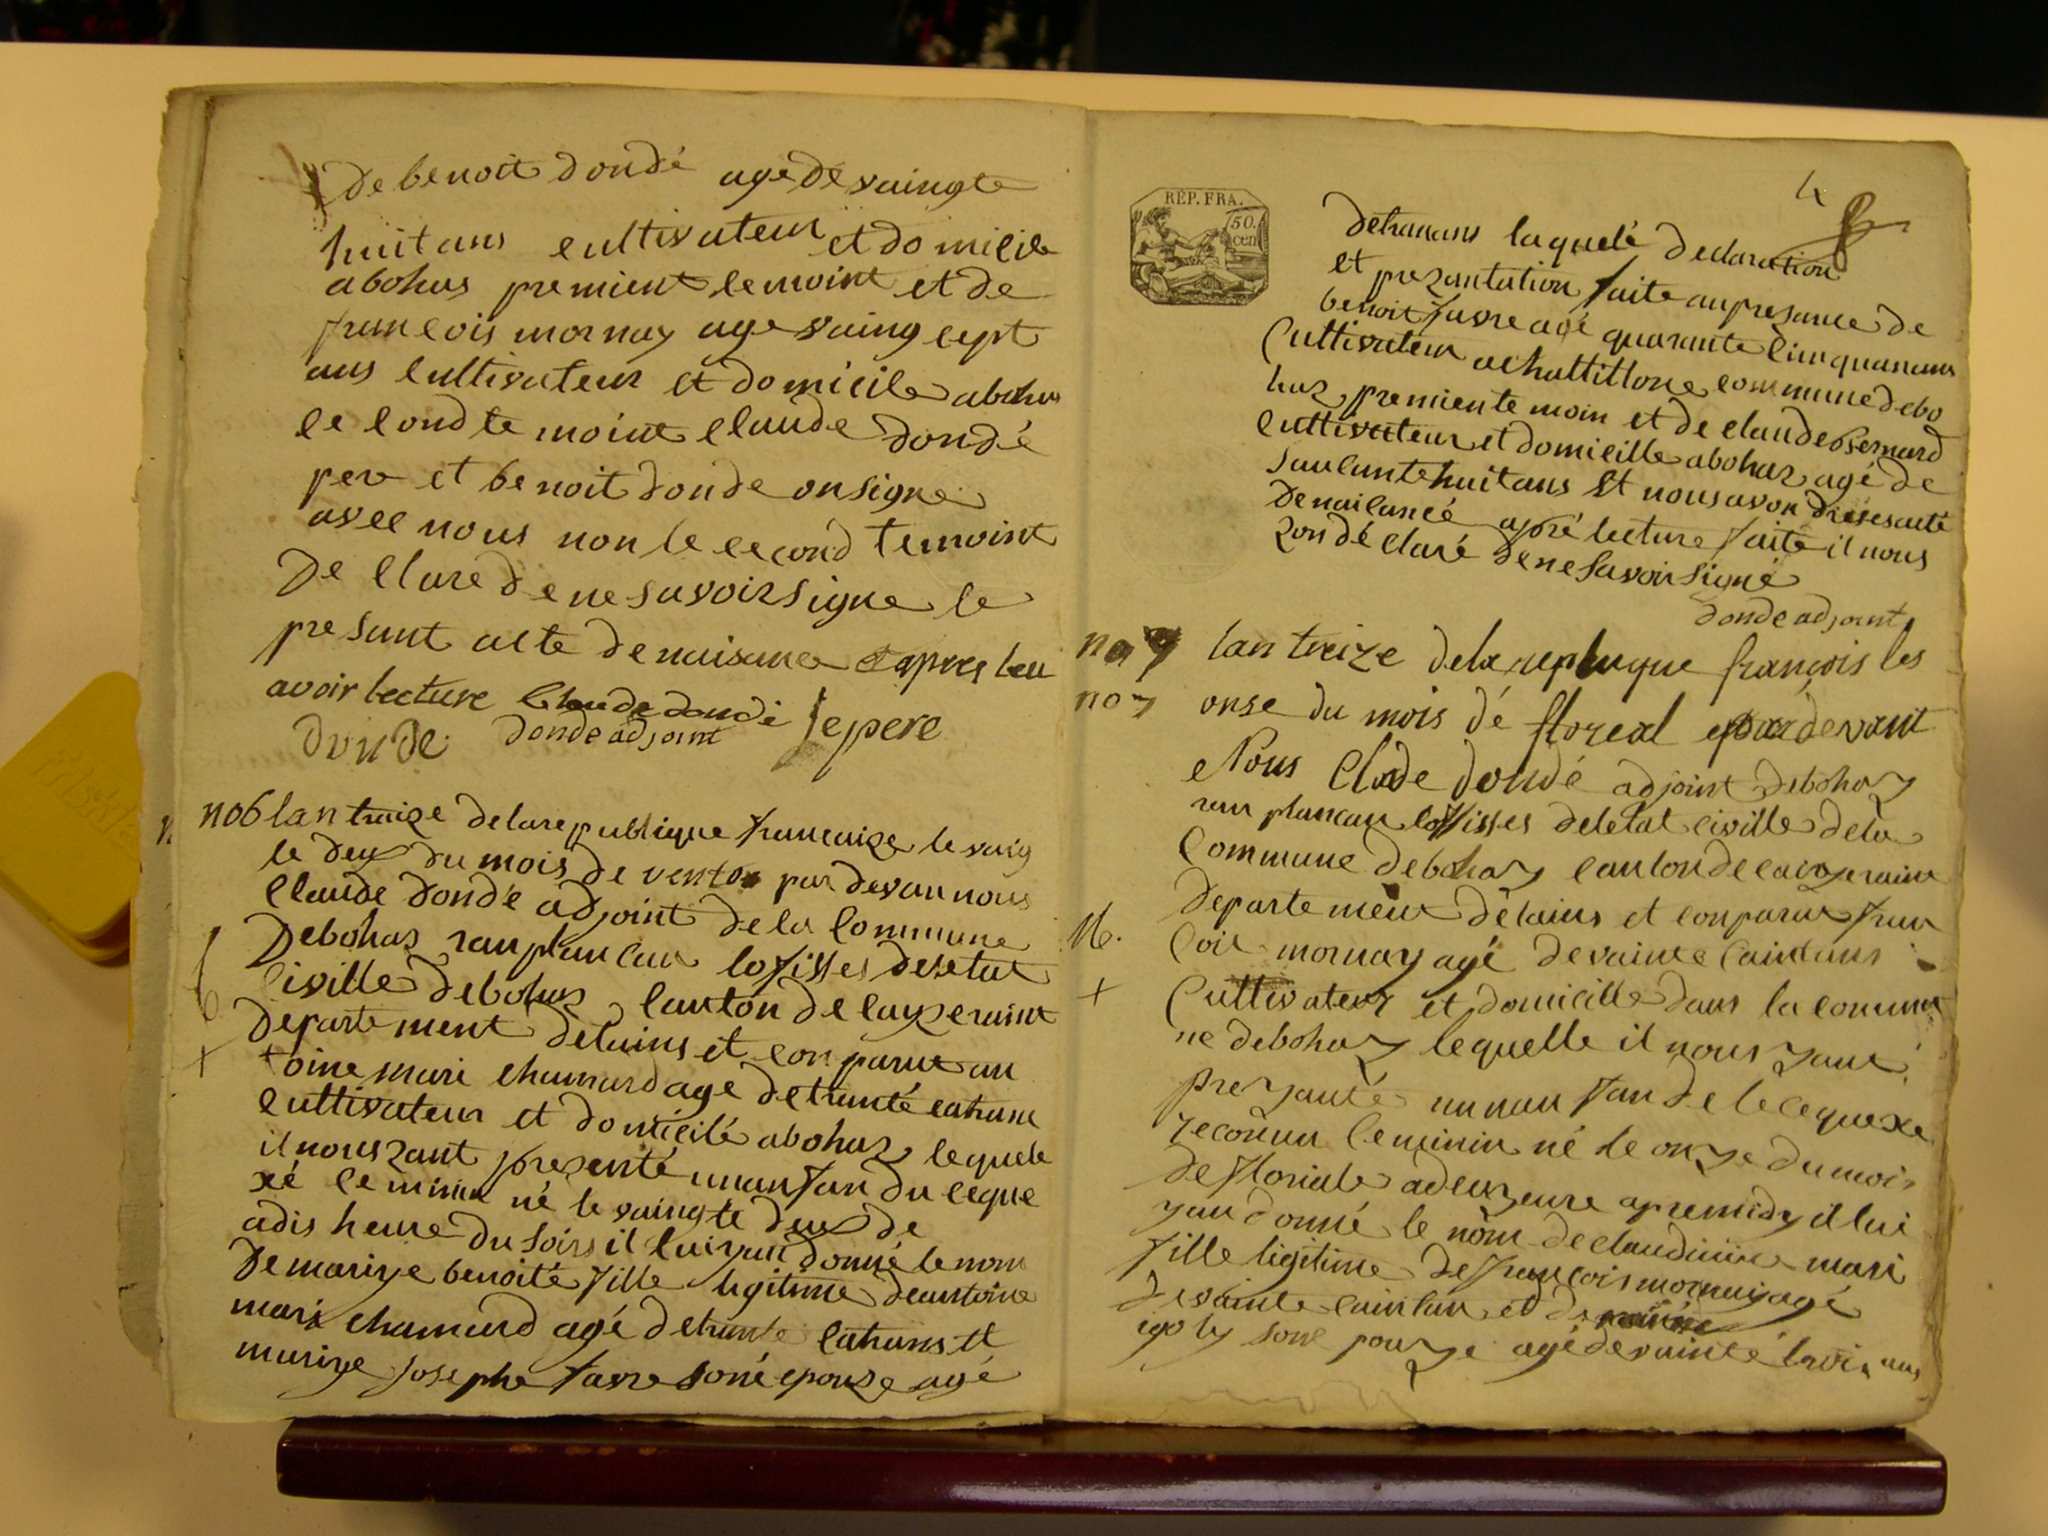 de benoit dondé age de vaingte
huit ans cultivateur et domicile
a bohas premient temoint et de
francois mornay age vaing cept
ans cultivateur et domicile a bohas
cecond temoint claude dondé
pere et benoit donde on signe
avec nous non le cecond temoint
de clare de ne savoir signe le
presant acte de naisance et apres leu
avoir lecture Claude dondé le pere
donde donde adjoint
no6 lan traize de la republique francaize le vaing
te deux du mois de ventos par devan nous
Claude dondé adjoint de la Commune
de bohas ranplancan loffisses de letat
civille de bohas canton de cayzeraint
departement delains et conparut an
toine mari chamard age de trante catrans
cultivateur et domicilé a bohas lequele
il nous zant presenté un anfan du ceque
xé ceminin né le vaingte deux de
a dis heure du soirs il lui yan donné le nom
de mariye benoité fille legitime de antoine
mari chamard agé de trante catrans et
mariye Josephe favre soné epouze agé
4
REP. FRA.
50.
cen
de tranans laquelé declaration
et prezantation faite an presance de
benoit favre agé quarante cinquanans
Cultivateur a chattillone commune de bo
has premiente moin et de claude Bernard
cultivateur et domicille a bohas agé de
saucante huit ans et nous avon dresé sacté
de naisancé apré lecture faité il nous
zon dé claré de ne savoir signé
donde adjoint
no 7 lan treize de la repluque françois les
no 7 onse du mois dé floreal epardevant
Nous Clode dondé adjoint de bohas
ran plancan loffisses de letat civille dela
Commune de bohas canton de cayzeraint
departement delains et conparut fran
16. cois mornay agé de vainte caint ans
+ Cultivateur et domicille dans la commu
ne de bohas lequelle il nous zant
prezanté un nanfan de le cequexe
reconnu ceminin né le onze du mois
de floriale a deuzeure apremidy il lui
yan donné le nom de claudinne mari
fille legitime de francois mornay agé
de vainte caint an et de
igoly sone pouze agé de vainté trois ans